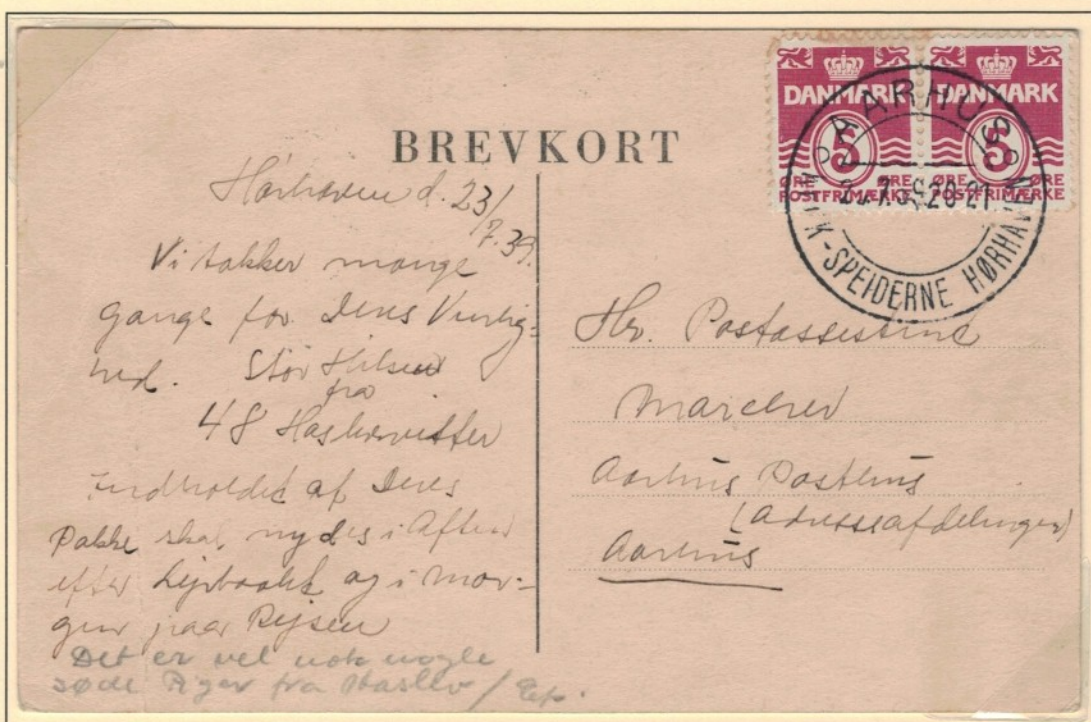 BREVKORT
DANMARK DANMARK
5 5
ØRE ØRE ØRE ØRE
POSTFRIMÆRKE POSTFRIMÆRKE
AARHUS
7.39 20-21
KFUK-SPEIDERNE HØRHAVEN
Hørhaven d. 23/
7.39.
Vi takker mange
gange for Deres Venlig-
hed. Stor Hilsen
fra
48
Indholdet af Deres
Pakke skal nydes i Aften
efter Lejrbaalet og i Mor-
gen paa Rejsen
Det er vel nok nogle
søde Piger fra Haslev /
Hr. Postassistent
Marcher
Aarhus Posthus
(Adresseafdelingen)
Aarhus